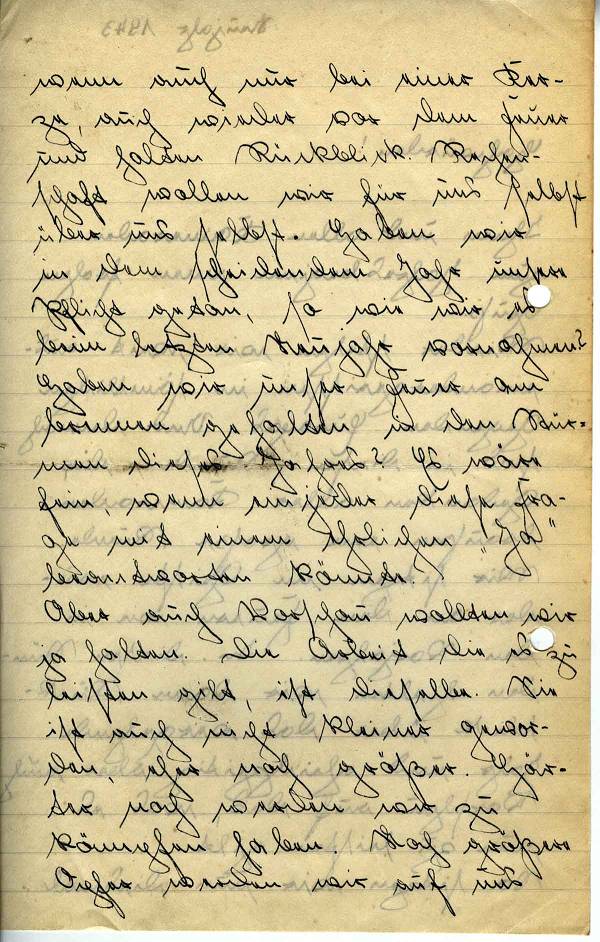 Neujahr 1943
wenn auch nur bei einer Ker-
ze, auch wieder vor dem Feuer
und halten Rückblick. Rechen-
schaft wollen wir für uns selbst
über uns selbst. Haben wir
in dem scheidendem Jahr unsere
Pflicht getan, so wie wir es
beim letzten Neujahr vornahmen?
Haben wir unser Feuer am
brennen gehalten in den Stür-
men dieses Jahres? Es wäre
fein, wenn ein jeder diese Fra-
ge mit einem ehrlichen "Ja"
beantworten könnte.
Aber auch Vorschau wollten wir
ja halten. Die Arbeit die es zu
leisten gilt, ist dieselbe. Sie
ist auch nicht kleiner gewor-
den, eher noch größer. Här-
ter noch werden wir zu
kämpfen haben. Noch größere
Opfer werden wir auf uns